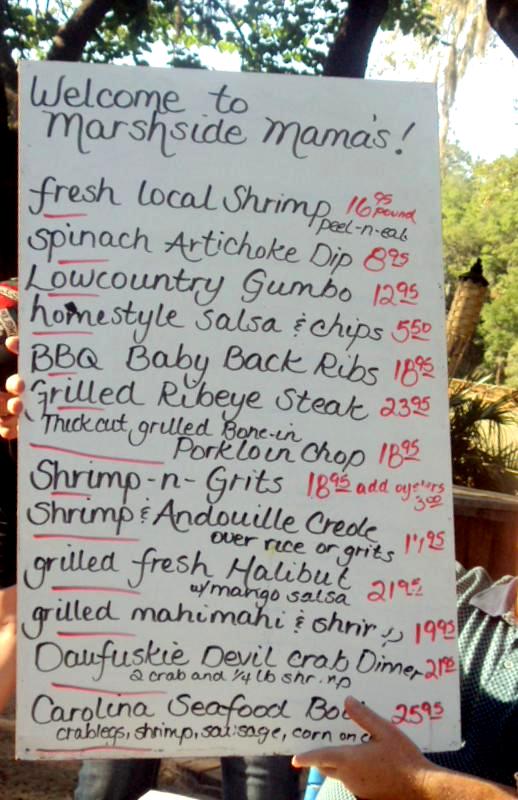 Welcome to
Marshside Mama's!
fresh local Shrimp 16.95 pound
peel-n-eat
Spinach Artichoke Dip 8.95
Lowcountry Gumbo 12.95
homestyle Salsa & chips 5.50
BBQ Baby Back Ribs 18.95
Grilled Ribeye Steak 23.95
Thick cut, grilled Bone-in
Pork loin chop 18.95
Shrimp-n-Grits 18.95 add oysters
3.00
Shrimp & Andouille Creole
over rice or grits
grilled fresh Halibut
w/mango salsa 21.95
grilled mahimahi & 19.95
Daufuskie Devil Crab Dinner
2 crab and 1/4 lb
Carolina Seafood 25.95
crablegs, shrimp, sausage, corn on